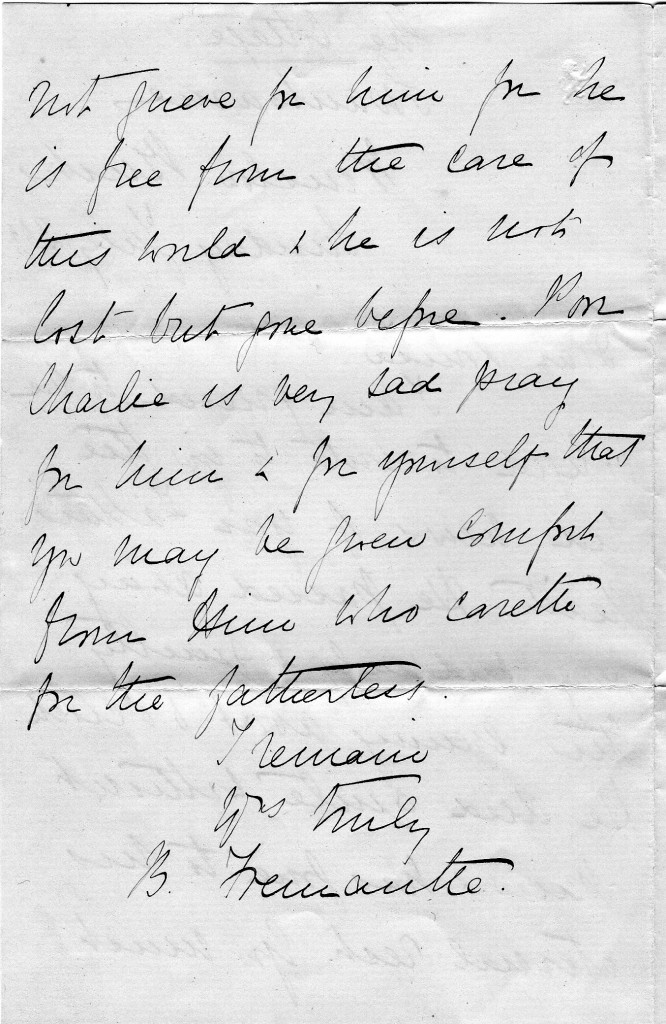 not grieve for him for he
is free from the care of
this world & he is not
lost but gone before. Poor
Charlie is very sad pray
for him & for yourself that
you may be given comfort
from Him who careth
for the fatherless.
I remain
Yrs truly
B. Fremantle.